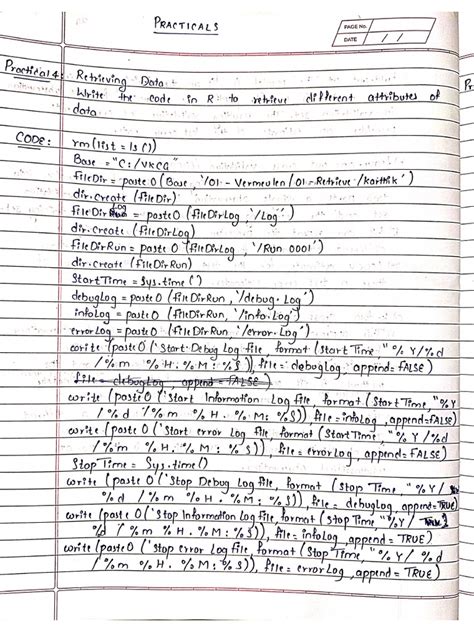 PRACTICALS
PAGE No.
DATE / /
Practical 4: Retrieving Data
Write the code in R to retrieve different attributes of
data.
CODE: rm(list = ls())
Base = "C:/VKCG"
fileDir = paste0 (Base, '/01 - Vermeulen/01-Retrieve/Karthik')
dir.create (fileDir)
fileDirLog = paste0 (fileDirLog, '/Log')
dir.create (fileDirLog)
fileDirRun = paste 0 (fileDirLog, '/Run 0001')
dir.create (fileDirRun)
StartTime = Sys.time()
debugLog = paste0 (fileDirRun, '/debug.Log')
infoLog = paste0 (fileDirRun, '/info.Log')
errorLog = paste0 (fileDirRun, '/error.Log')
write (paste0 ('Start Debug Log file, format (StartTime, "%Y/%d
/%m %H.%M:%S)), file = debugLog, append=FALSE)
file = debugLog, append = FALSE)
write (paste0 ('Start Information Log file, format (StartTime, "%Y
/%d /%m %H.%M:%S)), file=infoLog, append=FALSE)
write (paste0 ('Start error Log file, format (StartTime, "%Y/%d
/%m %H.%M:%S)), file = errorLog, append=FALSE)
StopTime = Sys.time()
write (paste0 ('Stop Debug Log file, format (Stop Time, "%Y/
%d /%m %H.%M:%S)), file = debugLog, append=TRUE)
write (paste0 ('Stop Information Log file, format (stop Time, "%Y/
%d /%m %H.%M:%S)), file = infoLog, append=TRUE)
write (paste0 ('Stop error Log file, format (Stop Time, "%Y/%d
/%m %H.%M:%S)), file = errorLog, append=TRUE)
Pr